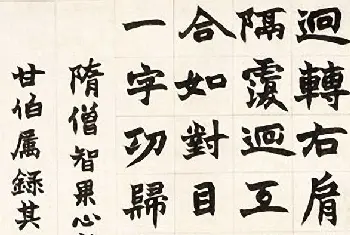 迴轉右肩
隔覆迴互
合如對目
一字功歸
隋僧智果心
甘伯属録其